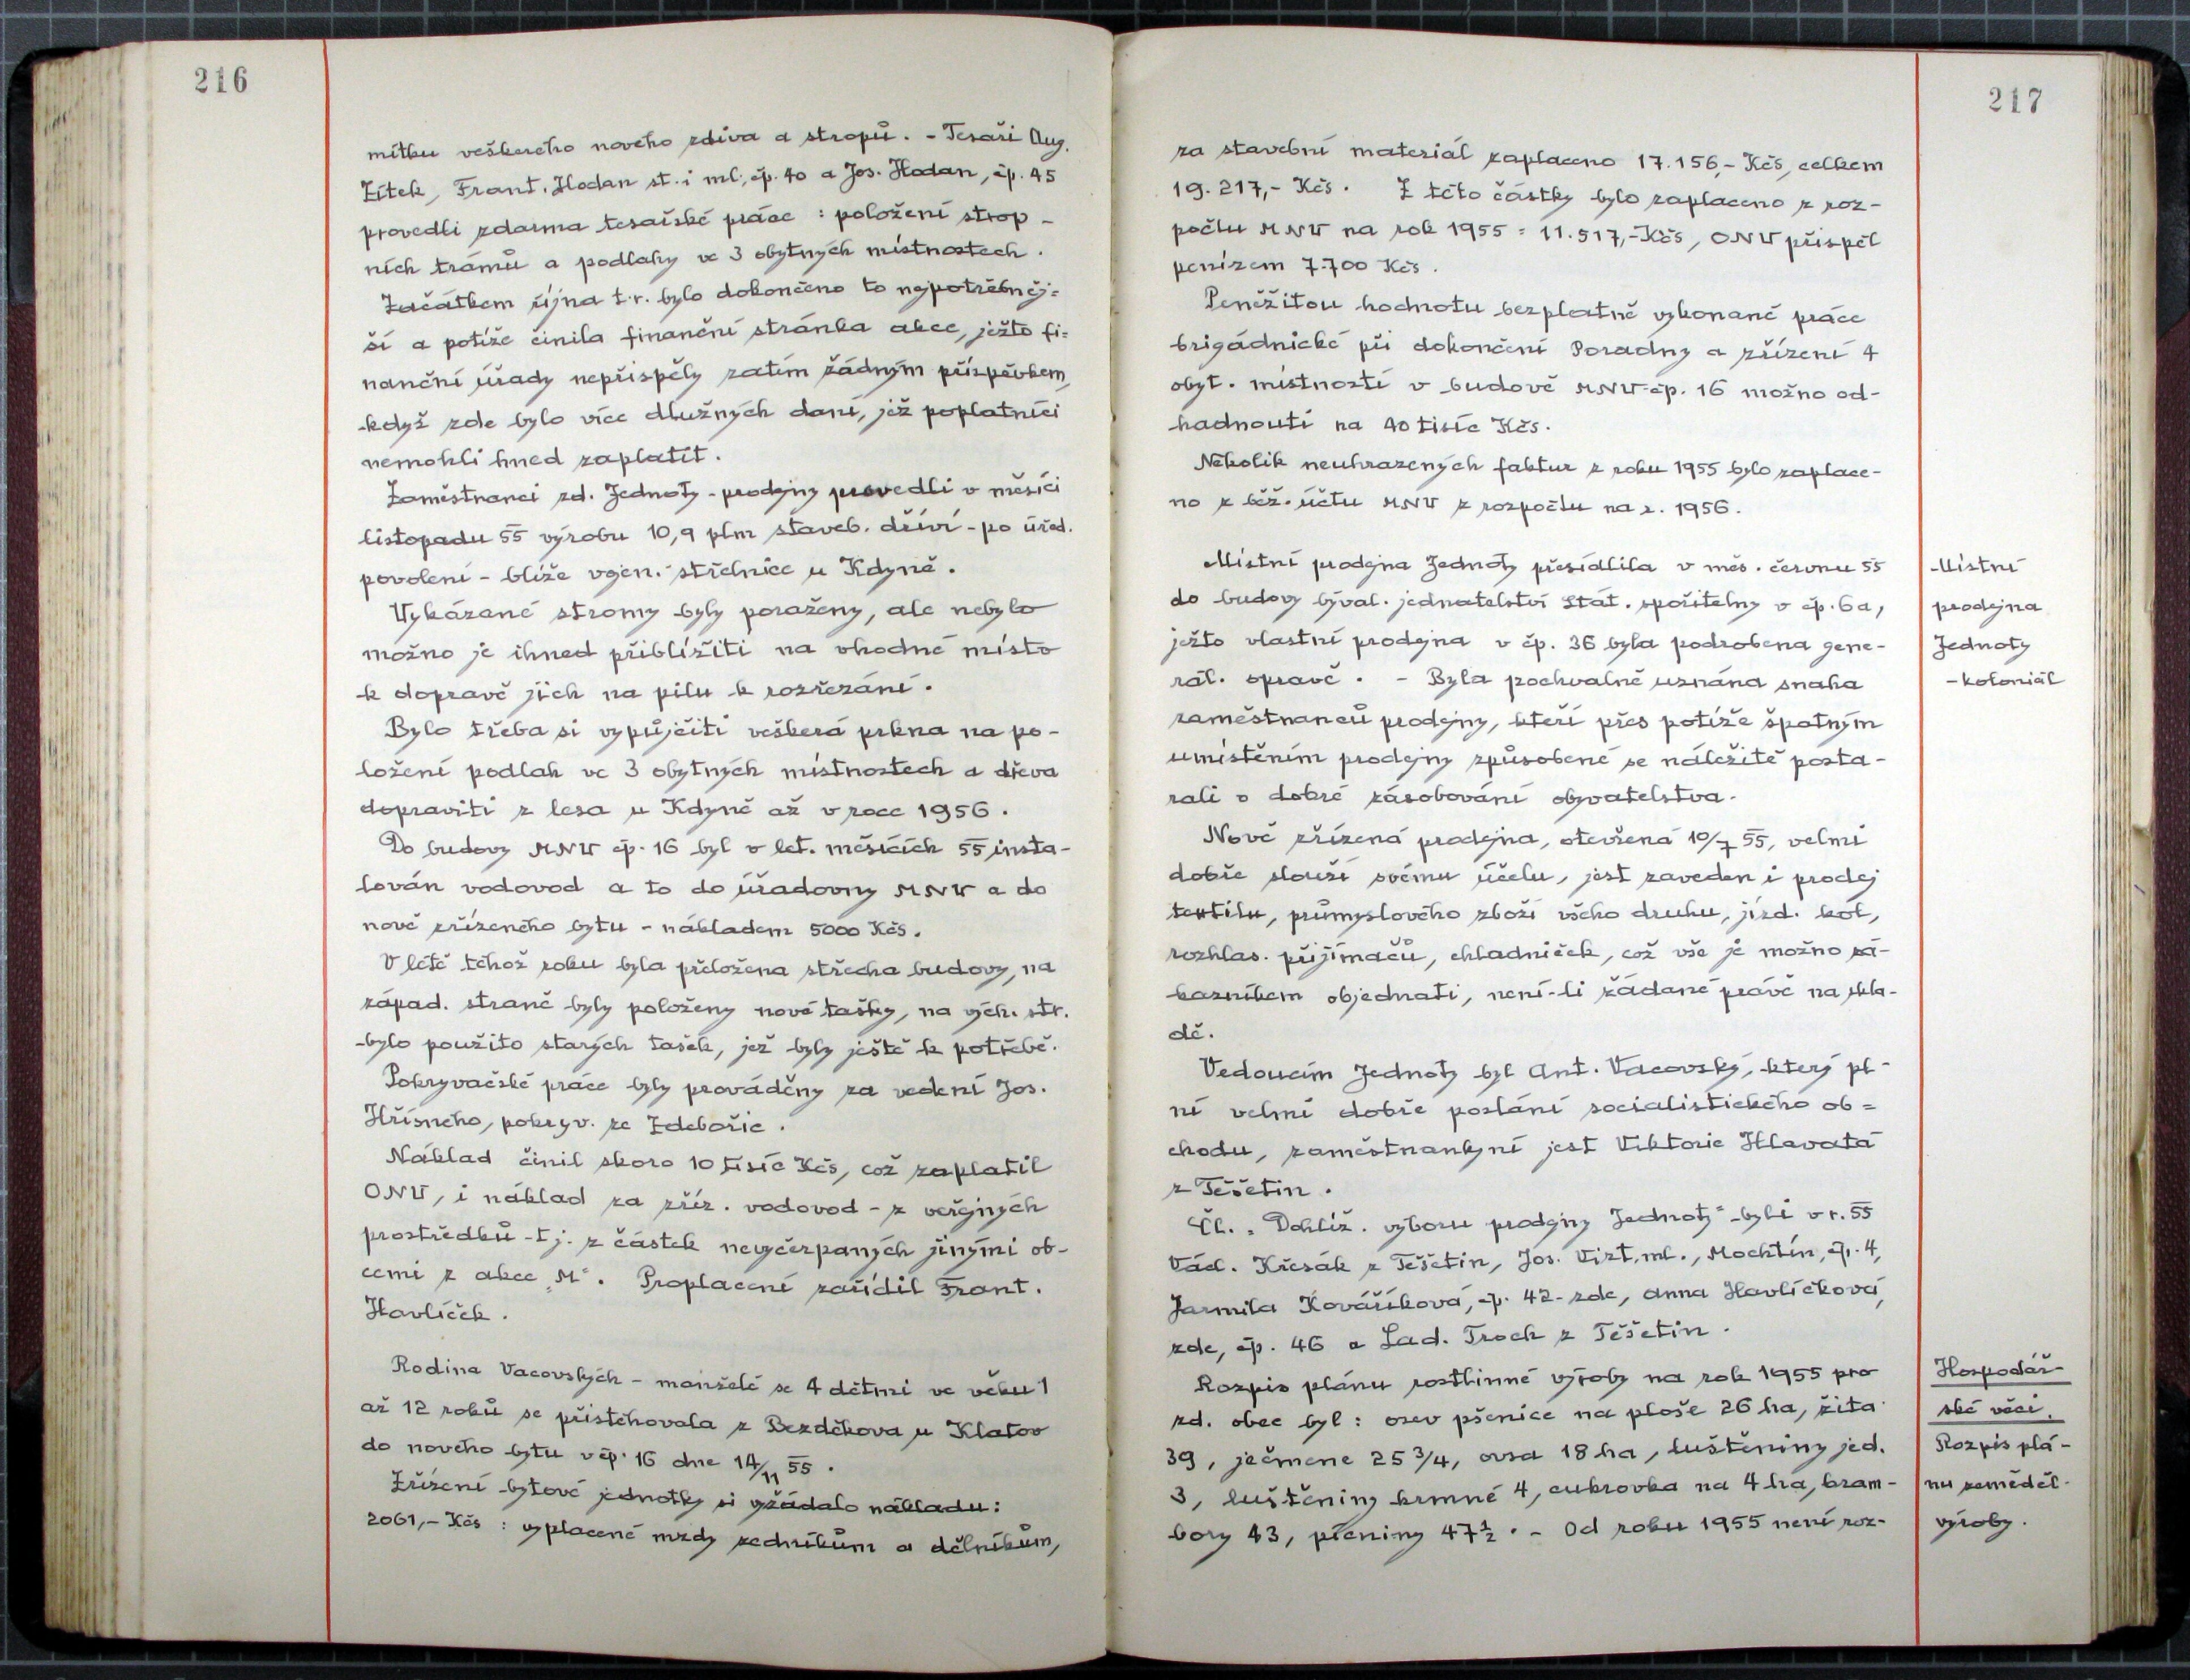 216
mítku veškerého nového zdiva a stropů. - Tesaři Aug.
Zítek, Frant. Hodan st. i ml., čp. 40 a Jos. Hodan, čp. 45
provedli zdarma tesařské práce : položení strop-
ních trámů a podlahy ve 3 obytných místnostech.
Začátkem října t.r. bylo dokončeno to nejpotřebněj=
ší a potíže činila finanční stránka akce, ježto fi=
nanční úřady nepřispěly zatím žádným příspěvkem,
když zde bylo více dlužných daní, jež poplatníci
nemohli hned zaplatit.
Zaměstnanci zd. Jednoty - prodejny provedli v měsíci
listopadu 55 výrobu 10,9 plm staveb. dříví - po úřed.
povolení - blíže vojen. střelnice u Kdyně.
Vykázané stromy byly poraženy, ale nebylo
možno je ihned přiblížiti na vhodné místo
k dopravě jich na pilu k rozřezání.
Bylo třeba si vypůjčiti veškerá prkna na po-
ložení podlah ve 3 obytných místnostech a dřeva
dopraviti z lesa u Kdyně až v roce 1956.
Do budovy MNV čp. 16 byl v let. měsících 55 insta-
lován vodovod a to do úřadovny MNV a do
nově zřízeného bytu - nákladem 5000 Kčs.
V létě téhož roku byla přeložena střecha budovy, na
západ. straně byly položeny nové tašky, na vých. str.
bylo použito starých tašek, jež byly ještě k potřebě.
Pokryvačské práce byly prováděny za vedení Jos.
Hříšného, pokryv. ze Zdebořic.
Náklad činil skoro 10 tisíc Kčs, což zaplatil
ONV, i náklad za zříz. vodovod - z veřejných
prostředků - tj. z částek nevyčerpaných jinými ob-
cemi z akce „M". Proplacení zařídil Frant.
Havlíček.
Rodina Vacovských - manželé se 4 dětmi ve věku 1
až 12 roků se přistěhovala z Bezděkova u Klatov
do nového bytu v čp. 16 dne 14/11 55.
Zřízení bytové jednotky si vyžádalo nákladu:
2061,- Kčs : vyplacené mzdy zedníkům a dělníkům,
217
za stavební materiál zaplaceno 17.156,- Kčs, celkem
19.217,- Kčs. Z této částky bylo zaplaceno z roz-
počtu MNV na rok 1955 = 11.517,- Kčs, ONV přispěl
penízem 7.700 Kčs.
Peněžitou hodnotu bezplatně vykonané práce
brigádnické při dokončení Poradny a zřízení 4
obyt. místností v budově MNV čp. 16 možno od-
hadnouti na 40 tisíc Kčs.
Několik neuhrazených faktur z roku 1955 bylo zaplace-
no z běž. účtu MNV z rozpočtu na r. 1956.
Místní prodejna Jednoty přesídlila v měs. červnu 55
do budovy býval. jednatelství Stát. spořitelny v čp. 6a,
ježto vlastní prodejna v čp. 36 byla podrobena gene-
rál. opravě. - Byla pochvalně uznána snaha
zaměstnanců prodejny, kteří přes potíže špatným
umístěním prodejny způsobené se náležitě posta-
rali o dobré zásobování obyvatelstva.
Nově zřízená prodejna, otevřená 10/7 55, velmi
dobře slouží svému účelu, jest zaveden i prodej
textilu, průmyslového zboží všeho druhu, jízd. kol,
rozhlas. přijímačů, chladniček, což vše je možno zá-
kazníkem objednati, není-li žádané právě na skla-
dě.
Vedoucím Jednoty byl Ant. Vacovský, který pl-
ní velmi dobře poslání socialistického ob=
chodu, zaměstnankyní jest Viktorie Hlavatá
z Těšetin.
Čl. „Dohlíž. výboru prodejny Jednoty" byli v r. 55
Václ. Křesák z Těšetin, Jos. Vizt. ml., Mochtín, čp. 4,
Jarmila Kováříková, čp. 42 - zde, Anna Havlíčková,
zde, čp. 46 a Lad. Troch z Těšetin.
Rozpis plánu rostlinné výroby na rok 1955 pro
zd. obec byl : osev pšenice na ploše 26 ha, žita
39, ječmene 25 3/4, ovsa 18 ha, luštěniny jed.
3, luštěniny krmné 4, cukrovka na 4 ha, bram-
bory 43, pícniny 47 1/2. - Od roku 1955 není roz-
Místní
prodejna
Jednoty
- koloniál
Hospodář-
ské věci.
Rozpis plá-
nu zeměděl.
výroby.